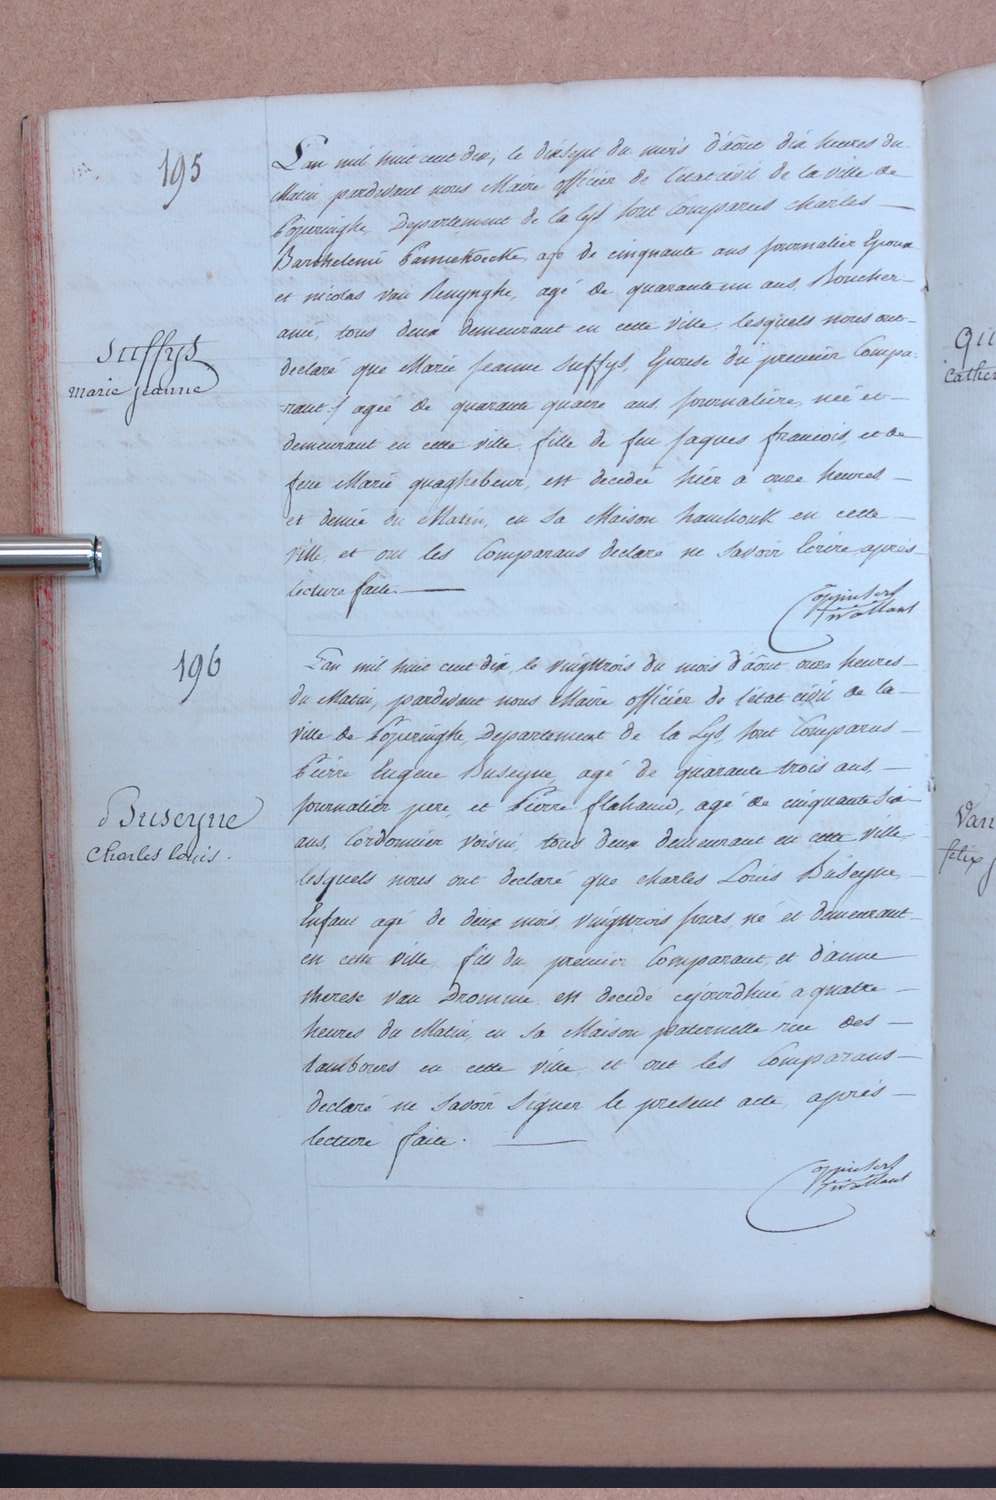 195
L'an mil huit cent dix, le dixsept du mois d'août dix heures du
Matin pardevant nous Maire officier de l'état civil de la ville de
Poperinghe, Departement de la Lys sont Comparus Charles —
Barthelemi Pannekoecke, agé de cinquante ans journalier Epoux
et nicolas van Renynghe, agé de quarante un ans, Boucher —
ami, tous deux demeurant en cette ville, lesquels nous ont —
declaré que Marie Jeanne Suffys, Epouse du premier Compa-
Suffys
marie jeanne
rant, agée de quarante quatre ans, journaliere, née et —
demeurant en cette ville, fille de feu jaques francois, et de
feue Marie quaghebeur, est decedée hier a onze heures —
et demie du Matin, en sa Maison hambouk en cette —
ville, et ont les Comparans declaré ne savoir Ecrire après
lecture faite. —
196
L'an mil huit cent dix, le vingttrois du mois d'août onze heures —
du Matin, pardevant nous Maire officier de l'état civil de la —
ville de Poperinghe, Departement de la Lys, sont Comparus —
Pierre Eugene Buseyne, agé de quarante trois ans, —
journalier pere, et Pierre flahaud, agé de cinquante six
Buseyne
Charles louis.
ans, Cordonnier voisin, tous deux demeurant en cette ville
lesquels nous ont declaré que Charles Louis Buseyne —
Enfant agé de deux mois vingttrois jours, né et demeurant —
en cette ville, fils du premier Comparant, et d'anne
therese van Dromme, est decedé cejourdhui a quatre —
heures du Matin, en sa Maison paternelle rue des —
tambours en cette ville, et ont les Comparans —
declaré ne savoir signer le present acte, après —
lecture faite. —